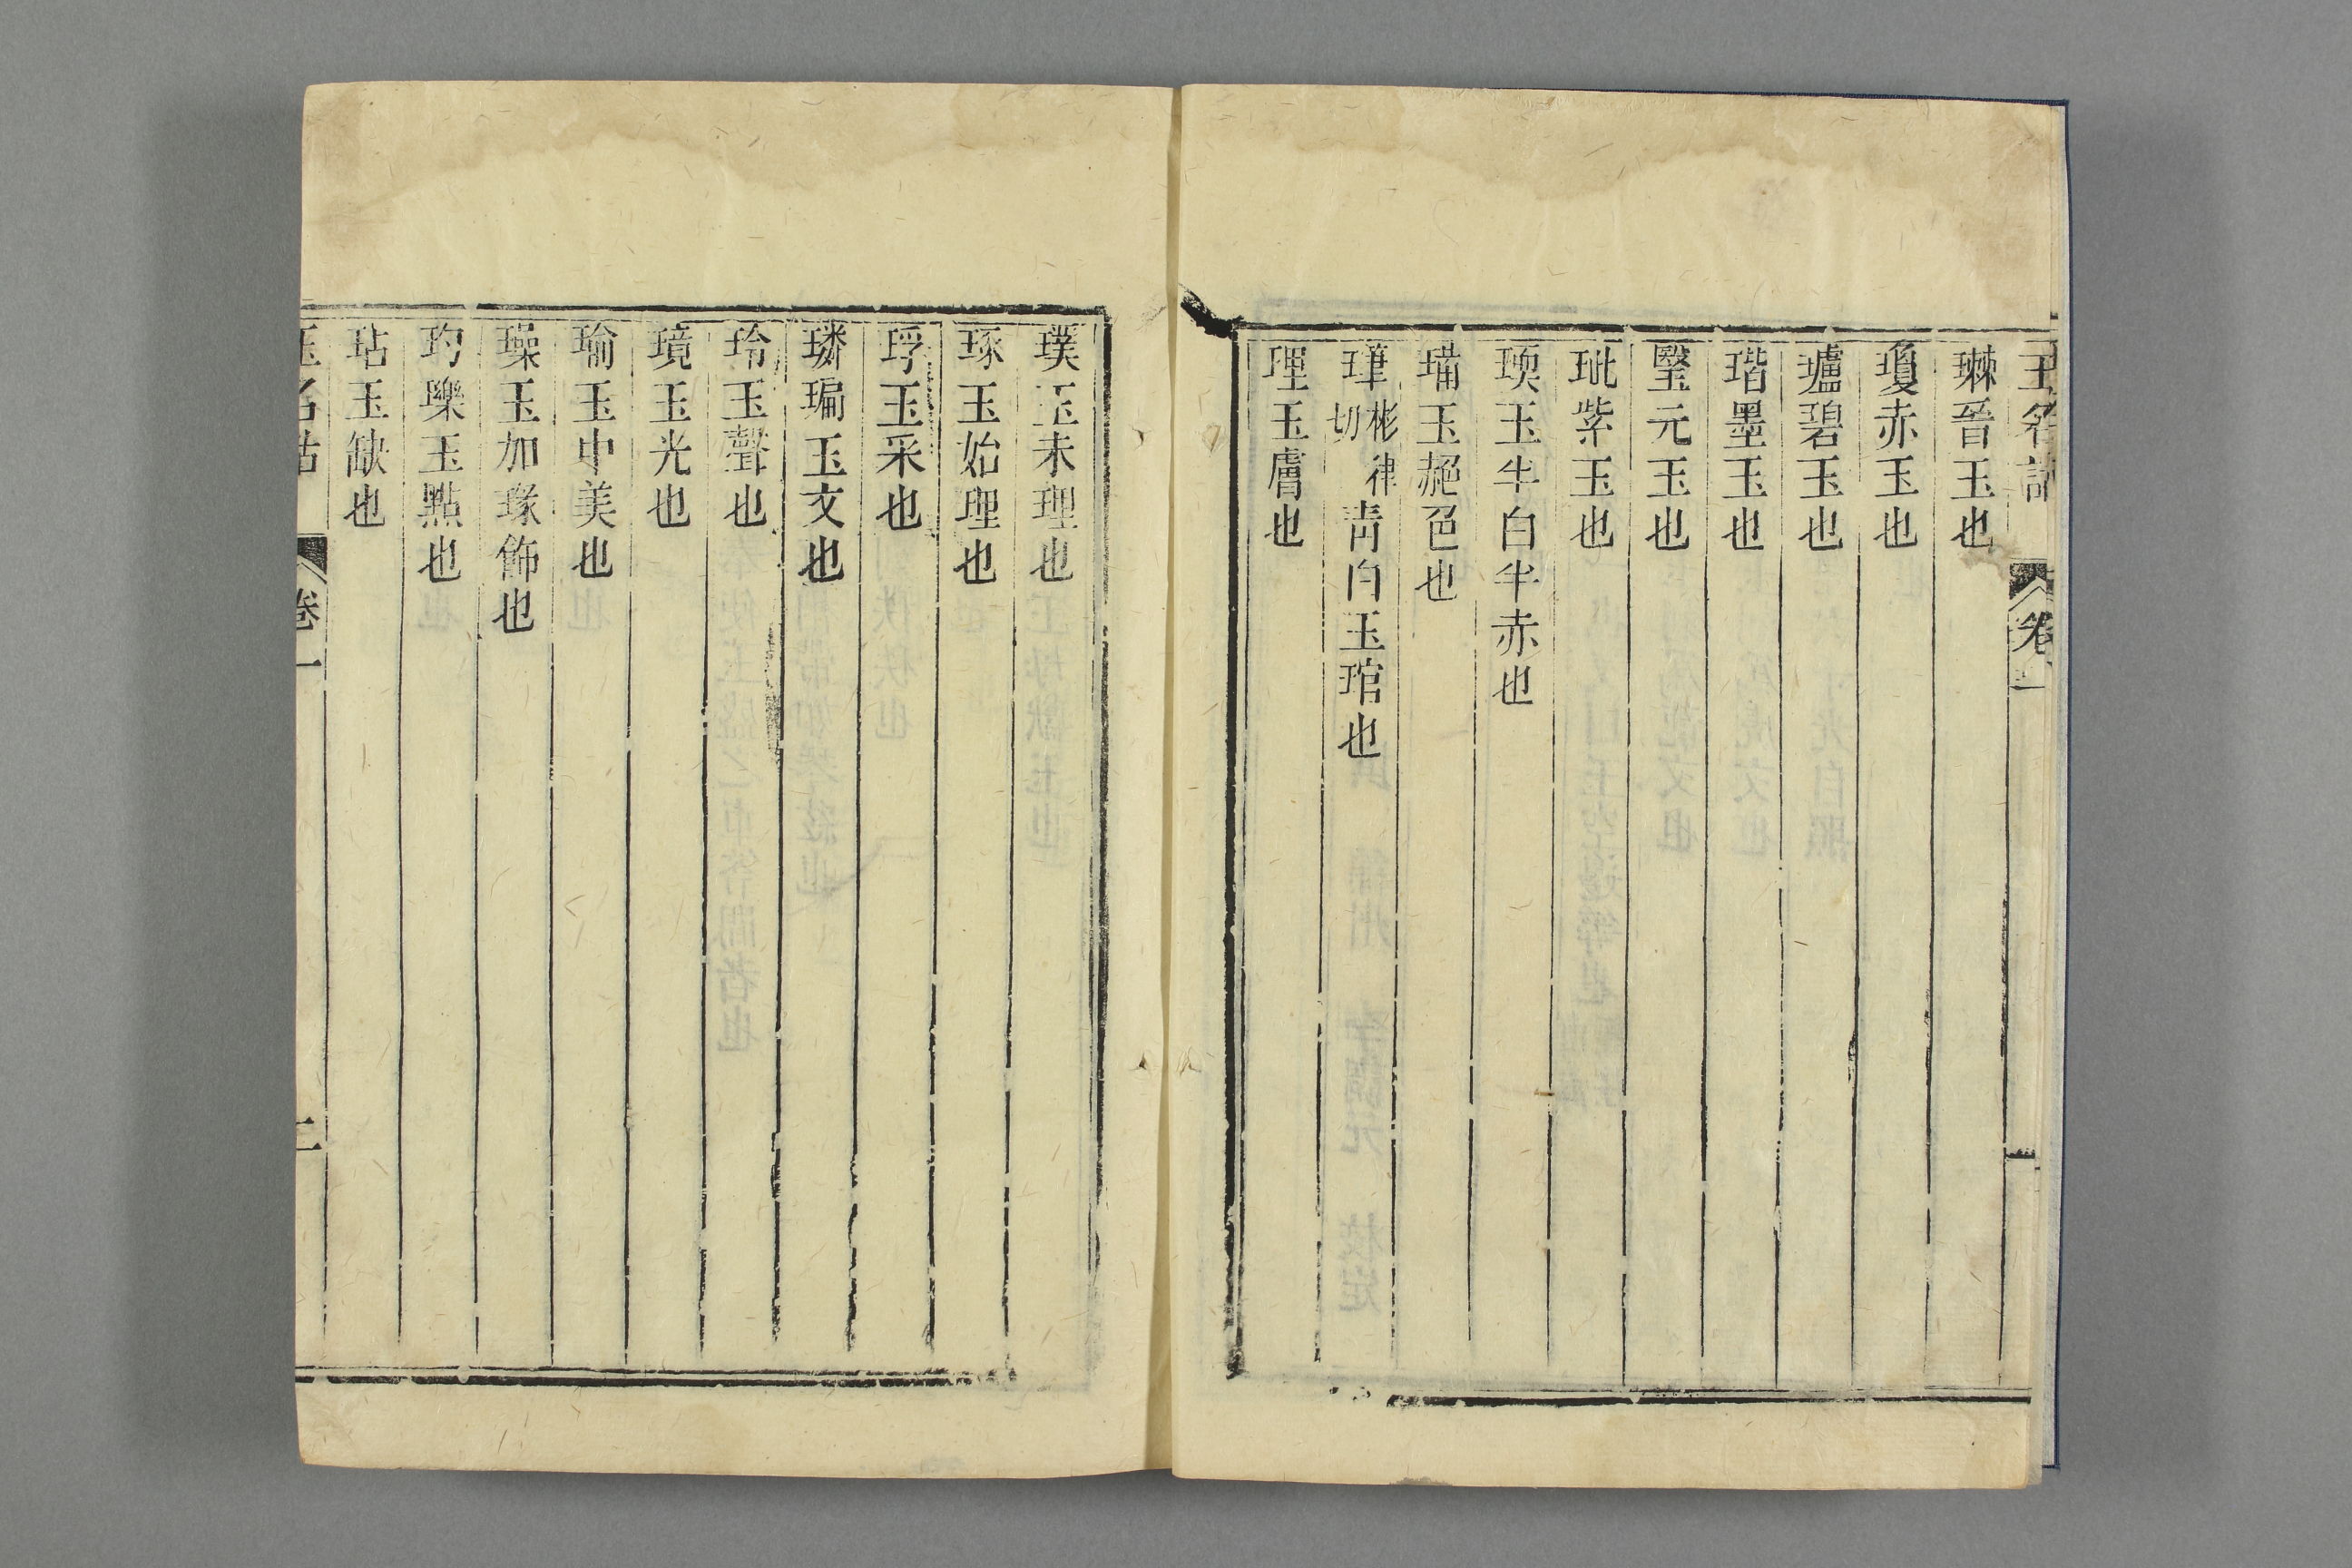 玉名詁 卷一 一
晉玉也
瓊赤玉也
瓐碧玉也
瑎墨玉也
瑿元玉也
玼紫玉也
玉半白半赤也
璊玉赩色也
彬律切青白玉琯也
理玉膚也
璞玉未理也
琢玉始理也
琈玉采也
璘㻞玉文也
玲玉聲也
璄玉光也
瑜玉中美也
璪玉加瑑飾也
玓瓅玉點也
玷玉缺也
玉名詁 卷一 二